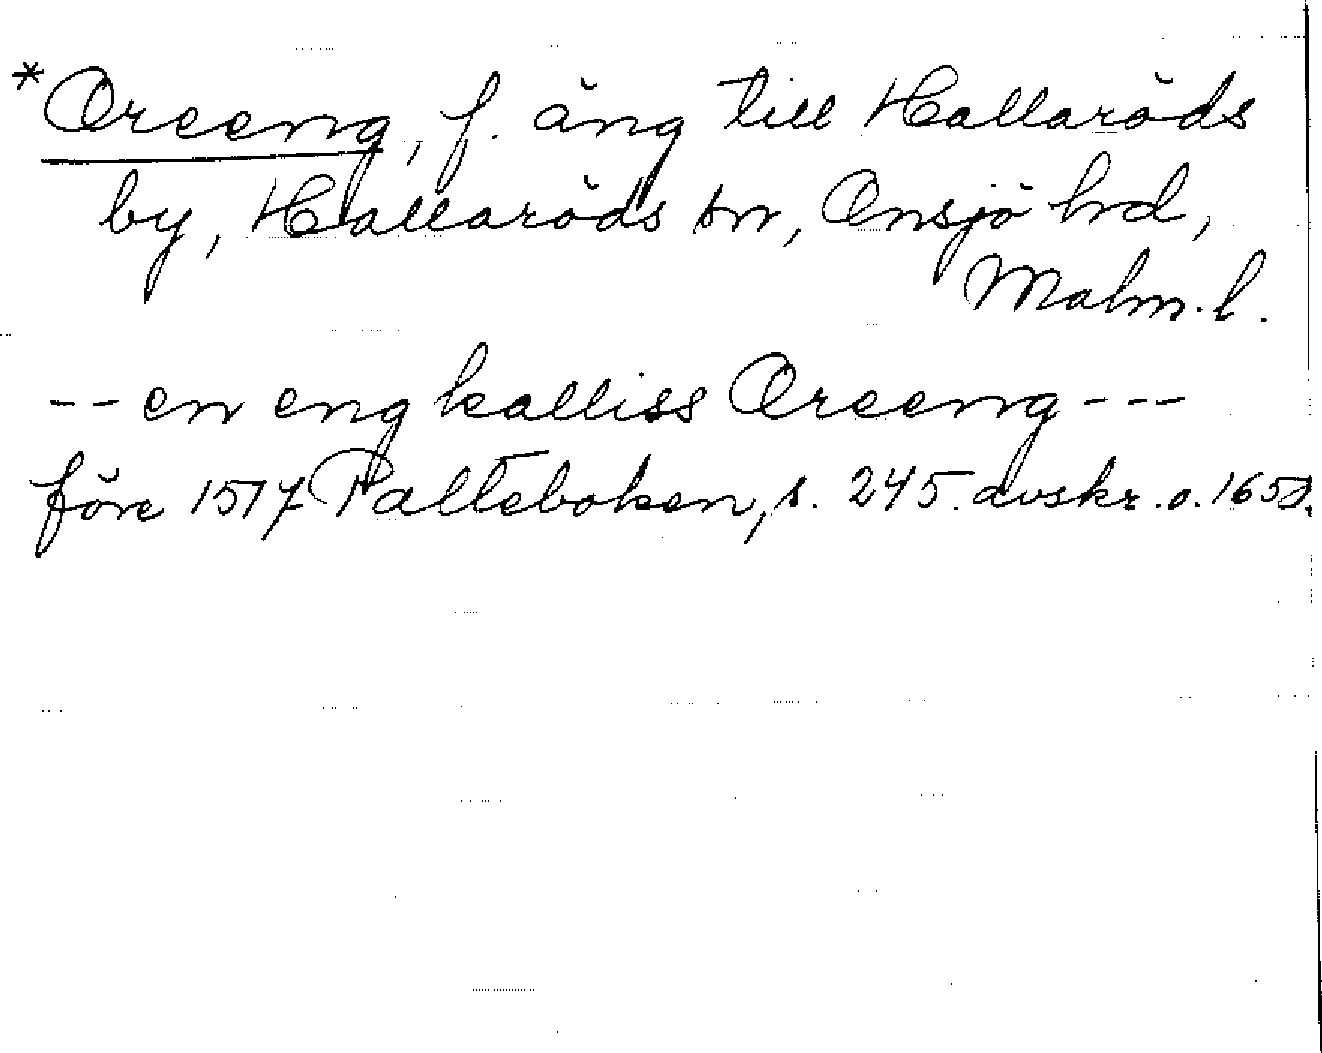 *Oreeng, f. äng till Hallaröds
by, Hallaröds sn, Onsjö hrd,
Malm. l.
-- en eng kalliss Oreeng ---
före 1517 Palteboken, s. 245. avskr. o. 1650.